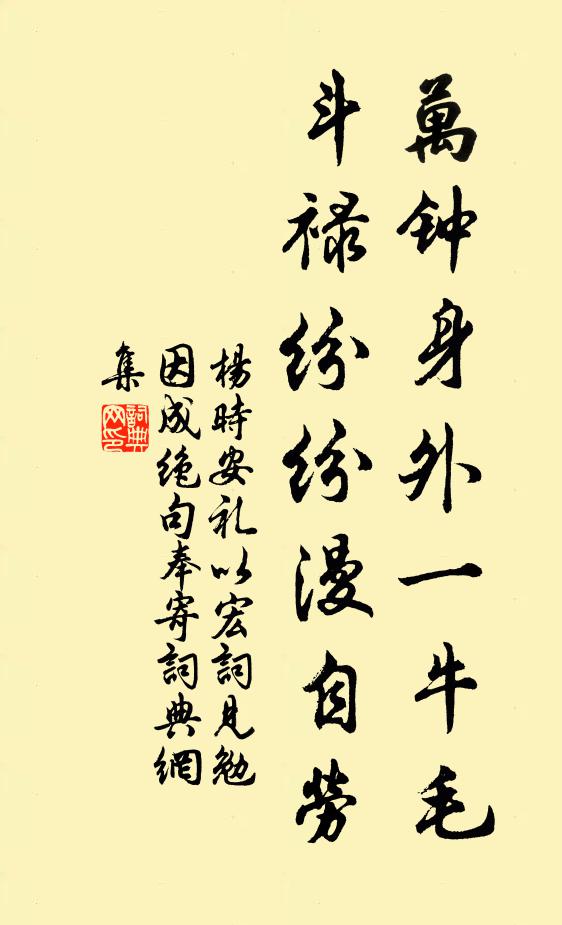 萬钟身外一牛毛
斗禄纷纷漫自勞
楊時安礼以宏詞見勉
因成绝句奉寄詞典網
集
詞典
网印